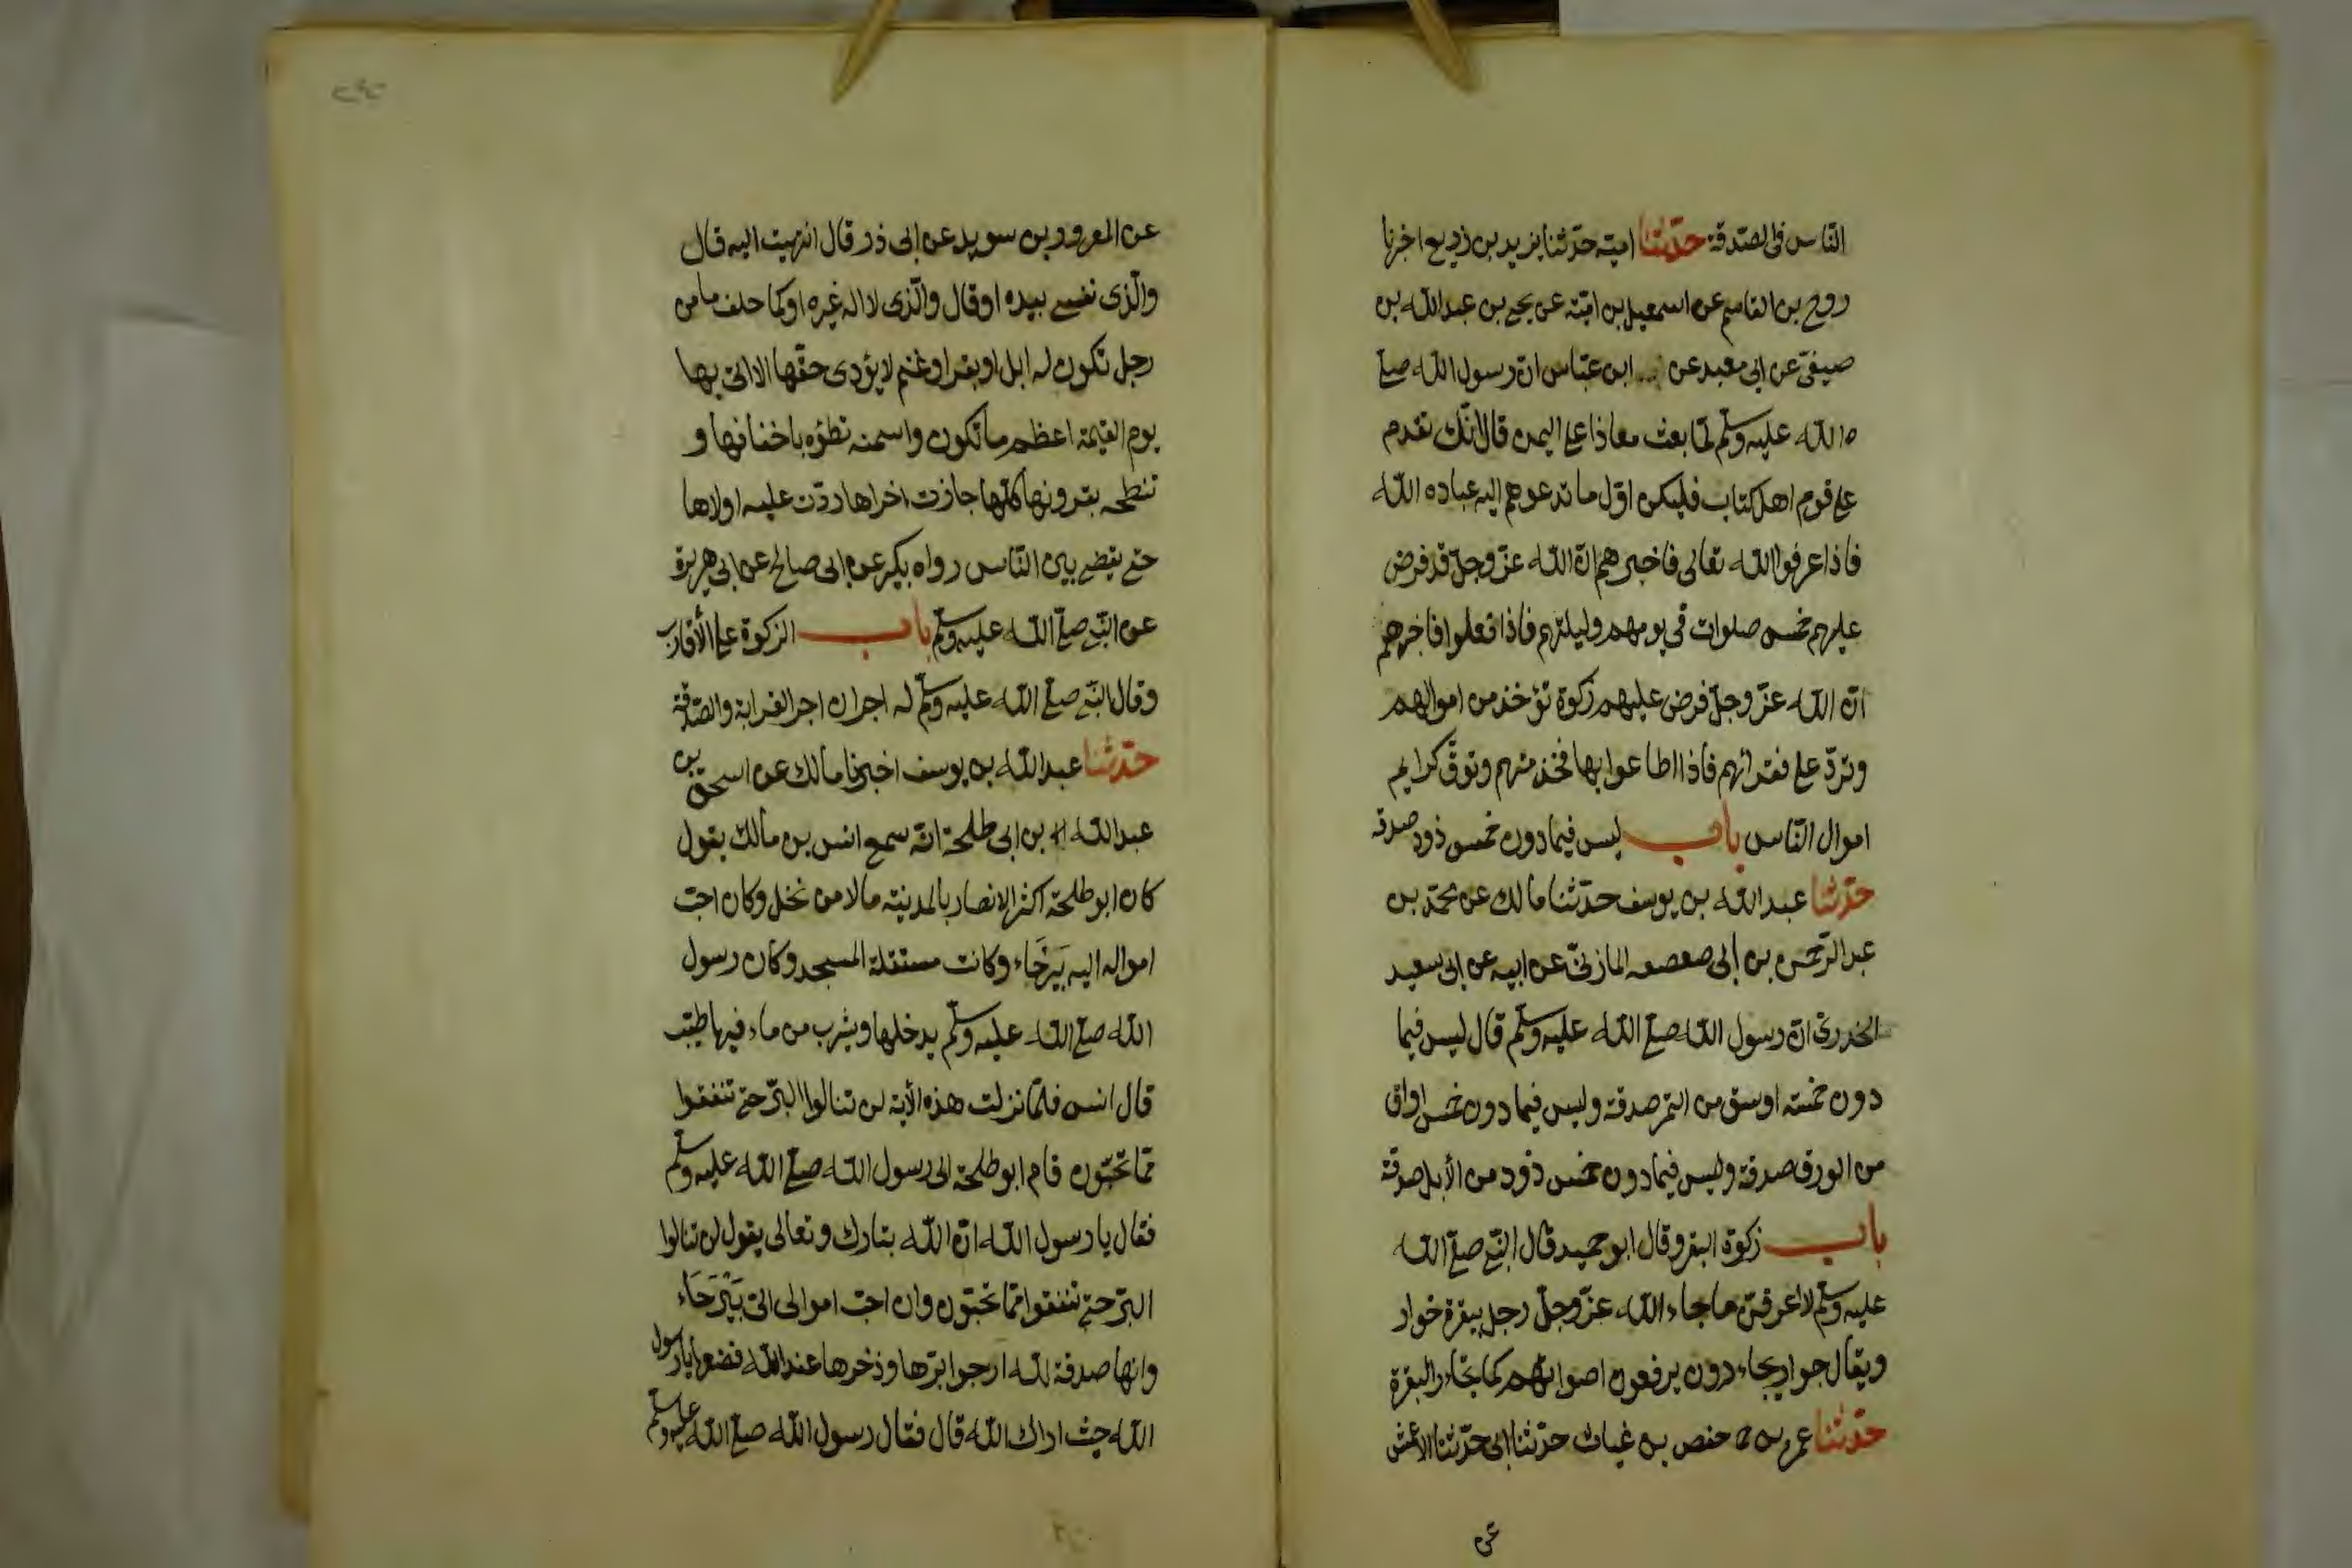 الناس في الصدقة حدّثنا امية حدّثنا يزيد بن زريع اخبرنا
روح بن القاسم عن اسمعيل بن امیّة عن يحيى بن عبد الله بن
صيفيّ عن ابى معبد عن ابن عبّاس انّ رسول الله صلّى
الله عليه وسلّم لمّا بعث معاذا على اليمن قال انّك تقدم
على قوم اهل كتاب فليكن اوّل ما تدعوهم اليه عباده الله
فاذا عرفوا الله تعالى فاخبرهم انّ الله عزّ وجلّ قد فرض
عليهم خمس صلوات فى يومهم وليلتهم فاذا فعلوا فاخبرهم
انّ الله عزّ وجلّ فرض عليهم زكوة تؤخذ من اموالهم
وتردّ على فقرائهم فاذا اطاعوا بها فخذ منهم وتوقّ كرايم
اموال النّاس باب ليس فيما دون خمس ذود صدقه
حدّثنا عبد الله بن يوسف حدّثنا مالك عن محمّد بن
عبد الرّحمن بن ابى صعصعه المازنىّ عن ابيه عن ابى سعيد
الخدرىّ انّ رسول الله صلّى الله عليه وسلّم قال ليس فيما
دون خمسة اوسق من التمر صدقة وليس فيما دون خمس اواق
من الورق صدقة وليس فيما دون خمس ذود من الأبل صدقة
باب زكوة البقر وقال ابو حميد قال النّبى صلّى الله
عليه وسلّم لاعرفنّ ما جاء الله عزّ وجلّ رجل ببقرة خوار
ويقال جوار يجاءرون يرفعون اصواتهم كما تجاءر البقرة
حدّثنا عمر بن حفص بن غياث حدّثنا ابى حدّثنا الاعمش
عن
عن المعرور بن سويد عن ابى ذر قال انتهيت اليه قال
والّذى نفسى بيده او قال والّذى لا اله غيره او كما حلف ما من
رجل تكون له ابل او بقر او غنم لا يؤدى حقّها الا اتى بها
يوم القيمة اعظم ما تكون واسمنه تطؤه باخفافها و
تنطحه بقرونها كلّما جازت اخراها ردّت عليه اولاها
حتى يقضى بين النّاس رواه بكير عن ابى صالح عن ابى هريرة
عن النّبى صلّى الله عليه وسلّم باب الزكوة على الأقارب
وقال النّبى صلّى الله عليه وسلّم له اجران اجر القرابة والصّدقة
حدّثنا عبد الله بن يوسف اخبرنا مالك عن اسحق بن
عبد الله بن ابى طلحة انّه سمع انس بن مالك يقول
كان ابو طلحة اكثر الانصار بالمدينة مالا من نخل وكان احبّ
امواله اليه بَيْرَحَاء وكانت مستقبلة المسجد وكان رسول
الله صلّى الله عليه وسلّم يدخلها ويشرب من ماء فيها طيّب
قال انس فلمّا نزلت هذه الأية لن تنالوا البرّ حتى تنفقوا
ممّا تحبّون قام ابو طلحة الى رسول الله صلّى الله عليه وسلّم
فقال يا رسول الله انّ الله تبارك وتعالى يقول لن تنالوا
البرّ حتى تنفقوا ممّا تحبّون وان احبّ اموالى الىّ بَيْرَحَاء
وانها صدقة لله ارجوا برّها وذخرها عند الله فضعها يا رسول
الله حيث اراك الله قال فقال رسول الله صلّى الله عليه وسلّم